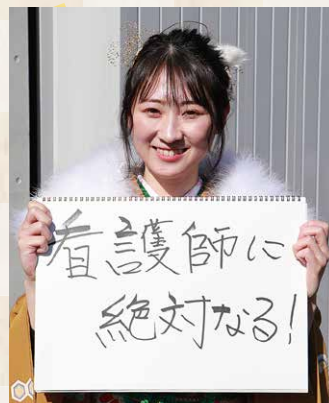 看護師に
絶対なる!